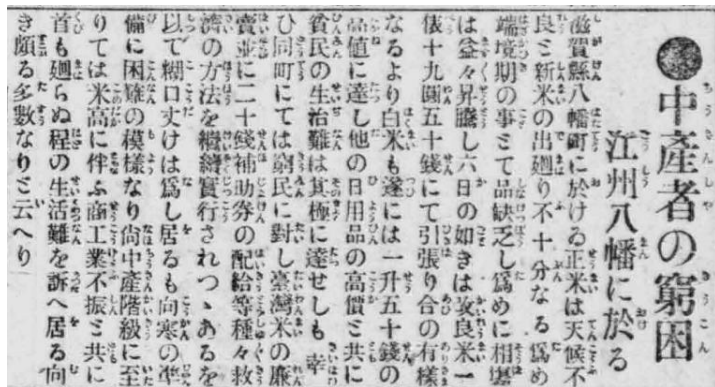 ●中產者の窮困
江州八幡に於る
滋賀縣八幡町に於ける正米は天候不
良と新米の出廻り不十分なる爲め
端境期の事とて品缺乏し爲めに相塲
は益々昇騰し六日の如きは改良米一
俵十九圓五十錢にて引張り合の有樣
なるより白米も遂には一升五十錢の
高値に達し他の日用品の高價と共に
貧民の生活難は其極に達せしも幸
ひ同町にては窮民に對し臺灣米の廉
賣並に二十錢補助券の配給等種々救
濟の方法を繼續實行されつゝあるを
以て糊口丈けは爲し居るも向寒の準
備に困難の模樣なり尙中產階級に至
りては米高に伴ふ商工業不振と共に
首も廻らぬ程の生活難を訴へ居る向
き頗る多數なりと云へり